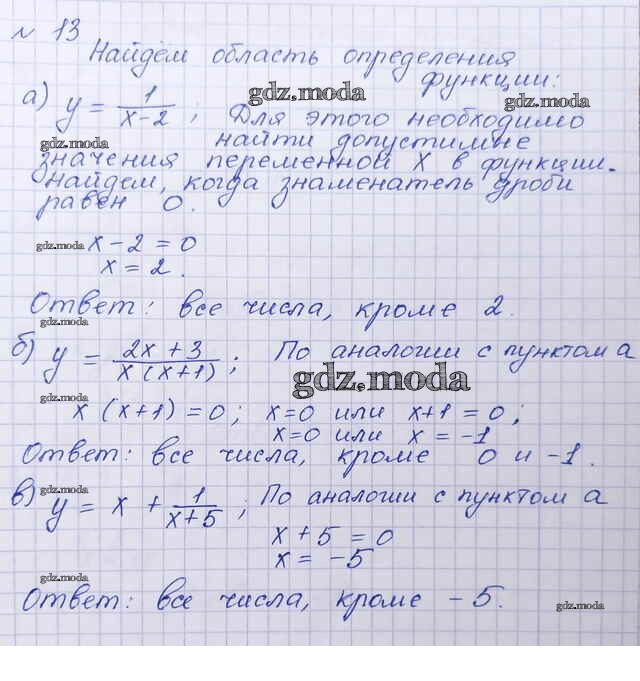 № 13
Найдём область определения
функции:
gdz.moda gdz.moda
а) y = 1/(x-2) ; Для этого необходимо
gdz.moda найти допустимне
значения переменной X в функции.
найдем, когда знаменатель дроби
равен 0.
gdz.moda x - 2 = 0
x = 2.
Ответ: все числа, кроме 2.
gdz.moda
б) y = (2x + 3)/(x(x+1)) ; По аналогии с пунктом а
gdz.moda
gdz.moda x (x+1) = 0; x=0 или x+1 = 0;
x=0 или x = -1
Ответ: все числа, кроме 0 и -1.
gdz.moda
в) y = x + 1/(x+5) ; По аналогии с пунктом а
x + 5 = 0
x = -5
gdz.moda
Ответ: все числа, кроме -5.
gdz.moda